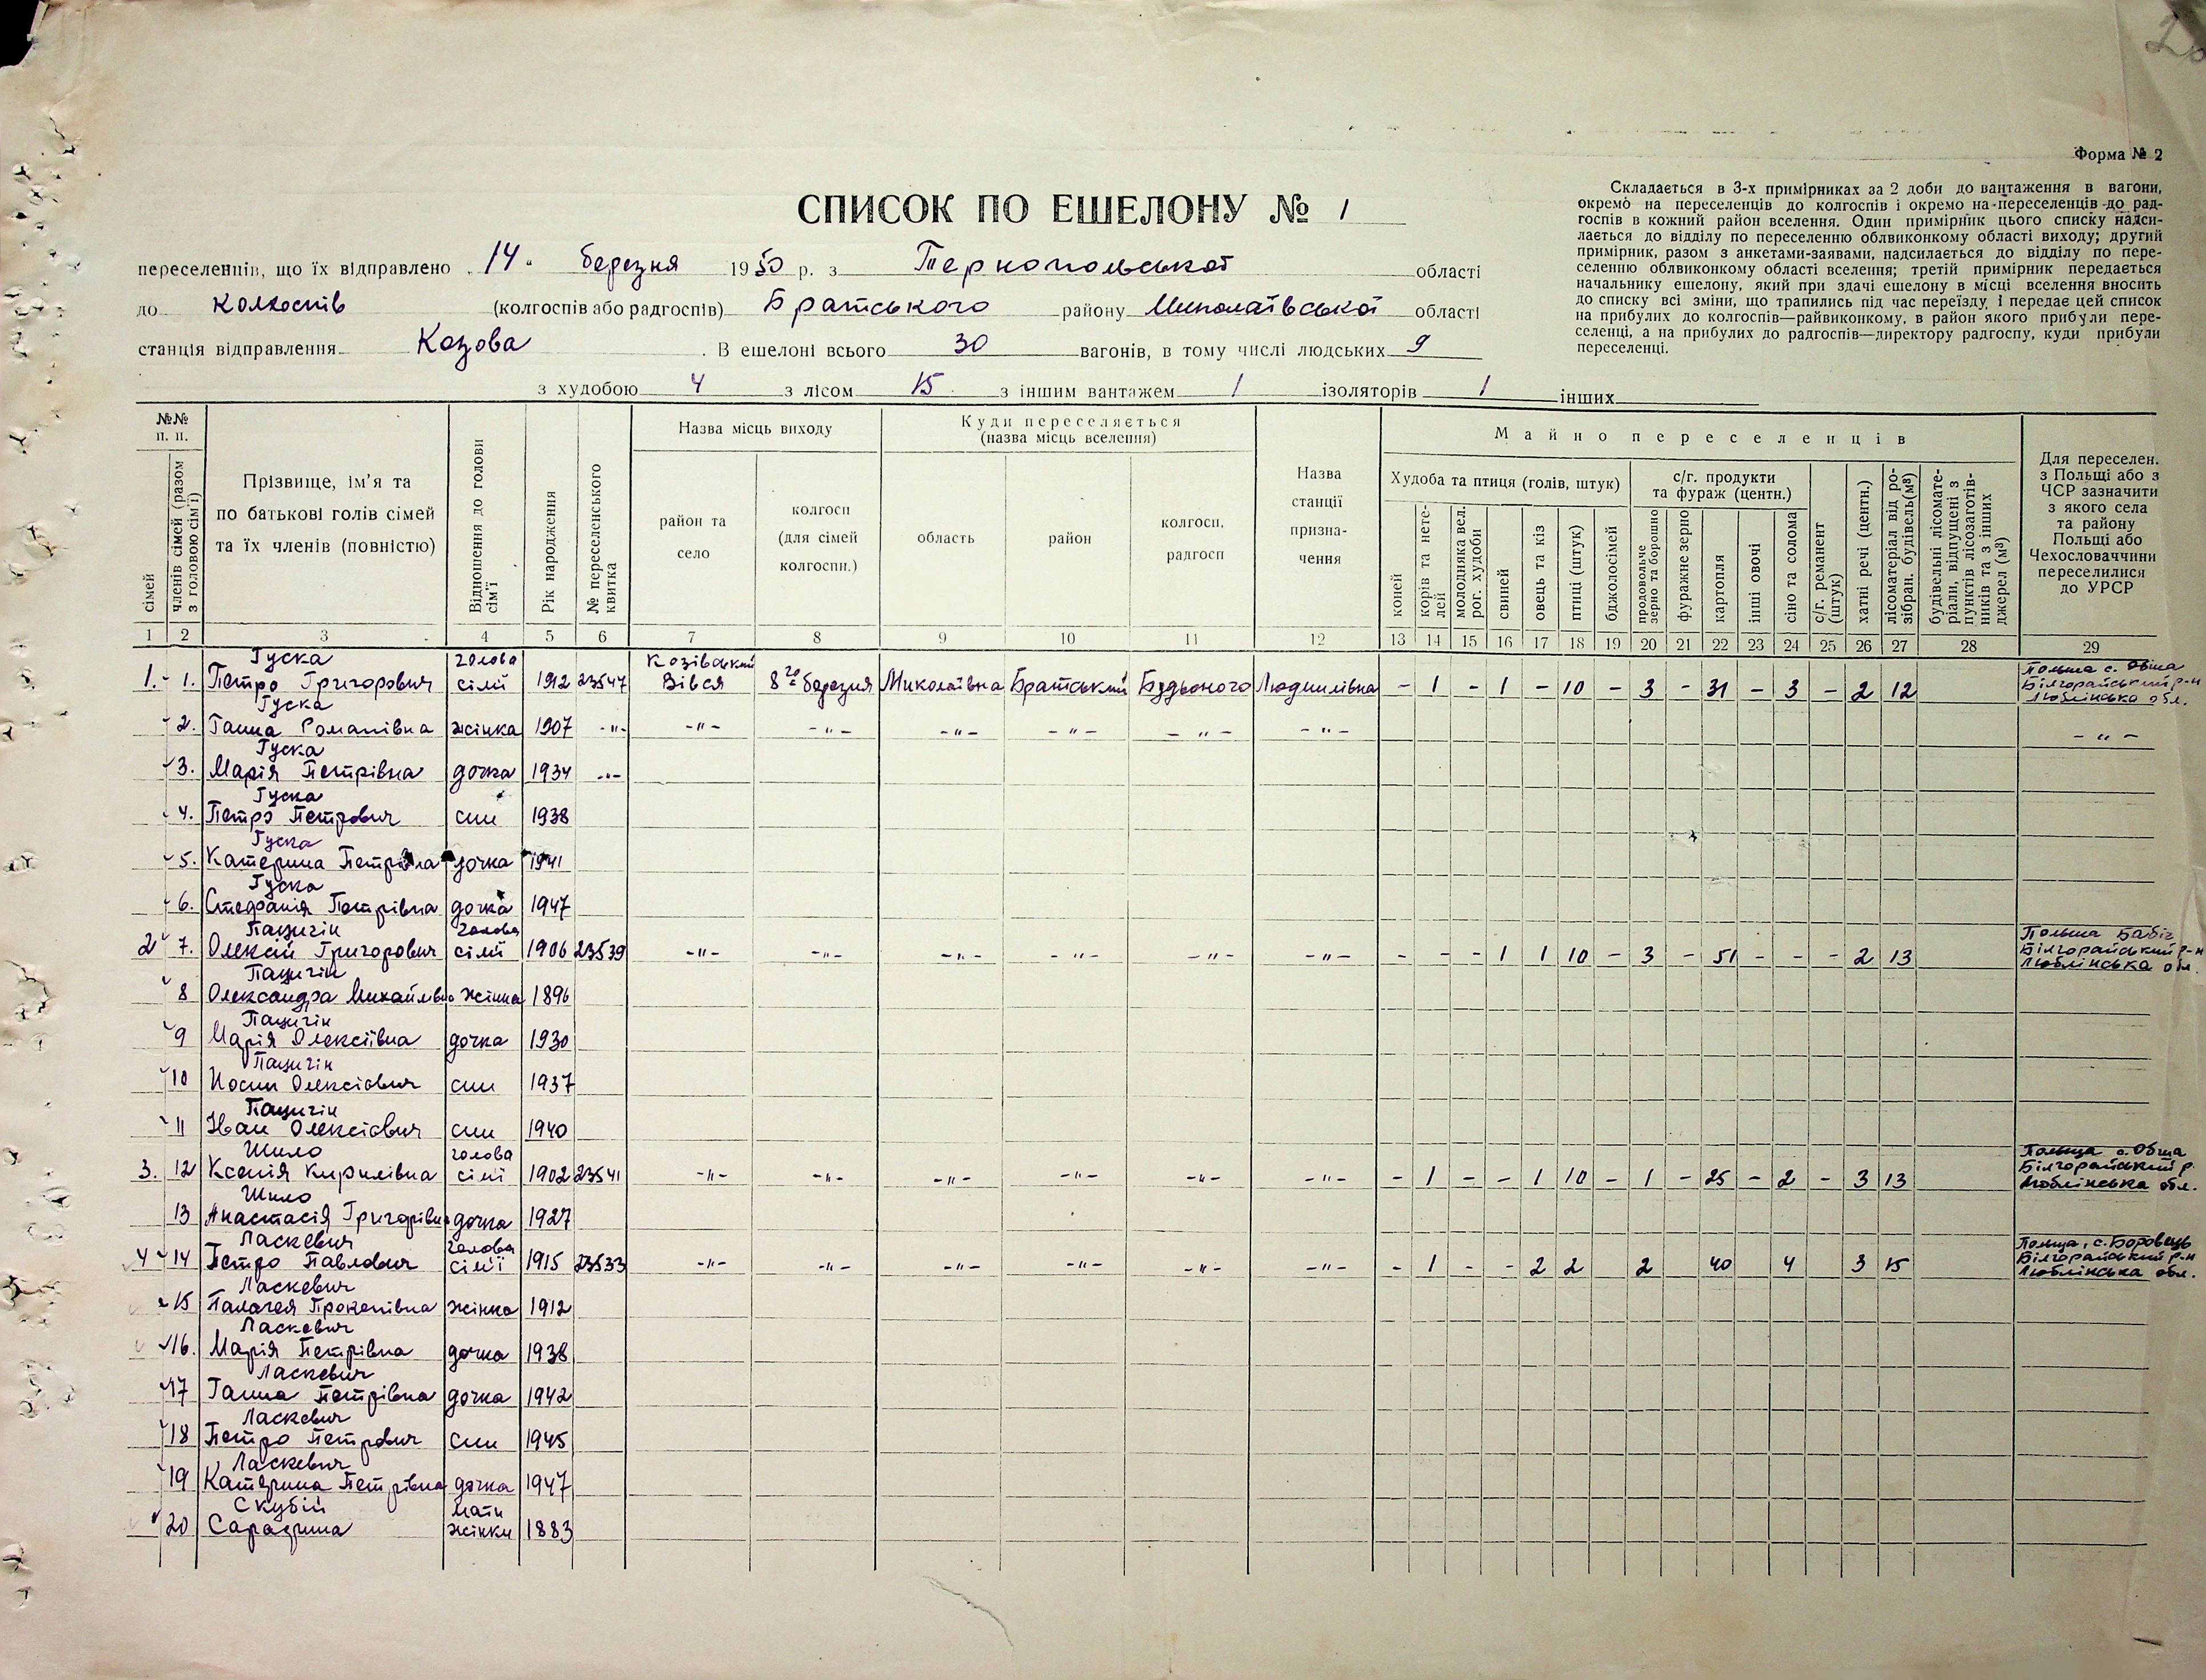 Форма № 2
СПИСОК ПО ЕШЕЛОНУ № 1
Складається в 3-х примірниках за 2 доби до вантаження в вагони,
окремо на переселенців до колгоспів і окремо на переселенців до рад-
госпів в кожний район вселення. Один примірник цього списку надси-
лається до відділу по переселенню облвиконкому області виходу; другий
примірник, разом з анкетами-заявами, надсилається до відділу по пере-
селенню облвиконкому області вселення; третій примірник передається
начальнику ешелону, який при здачі ешелону в місці вселення вносить
до списку всі зміни, що трапились під час переїзду, і передає цей список
на прибулих до колгоспів—райвиконкому, в район якого прибули пере-
селенці, а на прибулих до радгоспів—директору радгоспу, куди прибули
переселенці.
переселенців, що їх відправлено „14" березня 1950 р. з Тернопольської області
до колгоспів (колгоспів або радгоспів) Братського району Миколаївської області
станція відправлення Козова. В ешелоні всього 30 вагонів, в тому числі людських 9
з худобою 4 з лісом 15 з іншим вантажем 1 ізоляторів 1 інших
№№ п. п.
сімей
членів сімей (разом з головою сім'ї)
Прізвище, ім'я та
по батькові голів сімей
та їх членів (повністю)
Відношення до голови сім'ї
Рік народження
№ переселенського квитка
Назва місць виходу
район та село
колгосп (для сімей колгоспн.)
Куди переселяється
(назва місць вселення)
область
район
колгосп, радгосп
Назва станції призна- чення
Майно переселенців
Худоба та птиця (голів, штук)
коней
корів та нете- лей
молодняка вел. рог. худоби
свиней
овець та кіз
птиці (штук)
бджолосімей
с/г. продукти та фураж (центн.)
продовольче зерно та борошно
фуражне зерно
картопля
інші овочі
сіно та солома
с/г. реманент (штук)
хатні речі (центн.)
лісоматеріал від ро- зібран. будівель (м³)
будівельні лісомате- ріали, відпущені з пунктів лісозаготів- ників та з інших джерел (м³)
Для переселен.
з Польщі або з
ЧСР зазначити
з якого села
та району
Польщі або
Чехословаччини
переселилися
до УРСР
1 2 3 4 5 6 7 8 9 10 11 12 13 14 15 16 17 18 19 20 21 22 23 24 25 26 27 28 29
Гуска голова Козівський Польща с. Обша
1. 1. Петро Григорович сім'ї 1912 23547 Вівся 8го березня Миколаївка Братський Будьоного Людмилівка - 1 - 1 - 10 - 3 - 31 - 3 - 2 12 Білгорайський р-н
Люблінська обл.
Гуска
2. Ганна Романівна жінка 1907 -"- -"- -"- -"- -"- -"- -"- -"-
Гуска
3. Марія Петрівна дочка 1934 -"-
Гуска
4. Петро Петрович син 1938
Гуска
5. Катерина Петрівна дочка 1941
Гуска
6. Стефанія Петрівна дочка 1947
Пацигін голова Польша Бабіч
2 7. Олексій Григорович сім'ї 1906 23539 -"- -"- -"- -"- -"- -"- - - - 1 1 10 - 3 - 51 - - - 2 13 Білгорайський р-н
Люблінська обл.
Пацигін
8 Олександра Михайлівна жінка 1896
Пацигін
9 Марія Олексіївна дочка 1930
Пацигін
10 Йосип Олексієвич син 1937
Пацигін
11 Іван Олексієвич син 1940
Шило голова Польща с. Обша
3. 12 Ксенія Кирилівна сім'ї 1902 23541 -"- -"- -"- -"- -"- -"- - 1 - - 1 10 - 1 - 25 - 2 - 3 13 Білгорайський р.
Люблінська обл.
Шило
13 Анастасія Григорівна дочка 1927
Ласкевич голова Польща, с. Боровець
4 14 Петро Павлович сім'ї 1915 23533 -"- -"- -"- -"- -"- -"- - 1 - - 2 2 2 40 4 3 15 Білгорайський р-н
Люблінська обл.
Ласкевич
15 Палагея Прокопівна жінка 1912
Ласкевич
16. Марія Петрівна дочка 1938
Ласкевич
17 Ганна Петрівна дочка 1942
Ласкевич
18 Петро Петрович син 1945
Ласкевич
19 Катерина Петрівна дочка 1947
Скубій мати
20 Сарафина жінки 1883